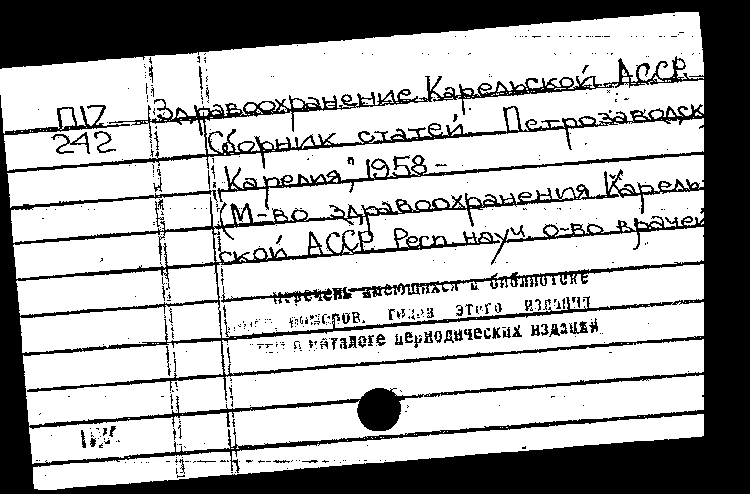 П17 Здравоохранение Карельской АССР.
242 Сборник статей. Петрозаводск
"Карелия", 1958 -
(М-во здравоохранения Карель-
ской АССР. Респ. науч. о-во врачей
Перечень имеющихся в библиотеке
номеров, годов этого издания
в каталоге периодических изданий